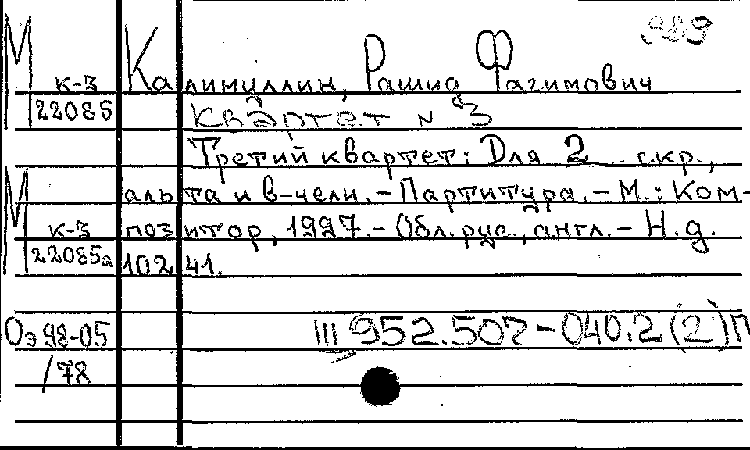 989
М к-3 22085
Калимуллин, Рашид Фагимович
Квартет № 3
Третий квартет: Для 2 скр.,
альта и в-чели. - Партитура. - М.: Ком-
М к-3 22085а
позитор, 1997. - Обл. рус., англ. - Н. д.
10241.
Оэ 98-05
/78
III 952.507-040.2(2)П